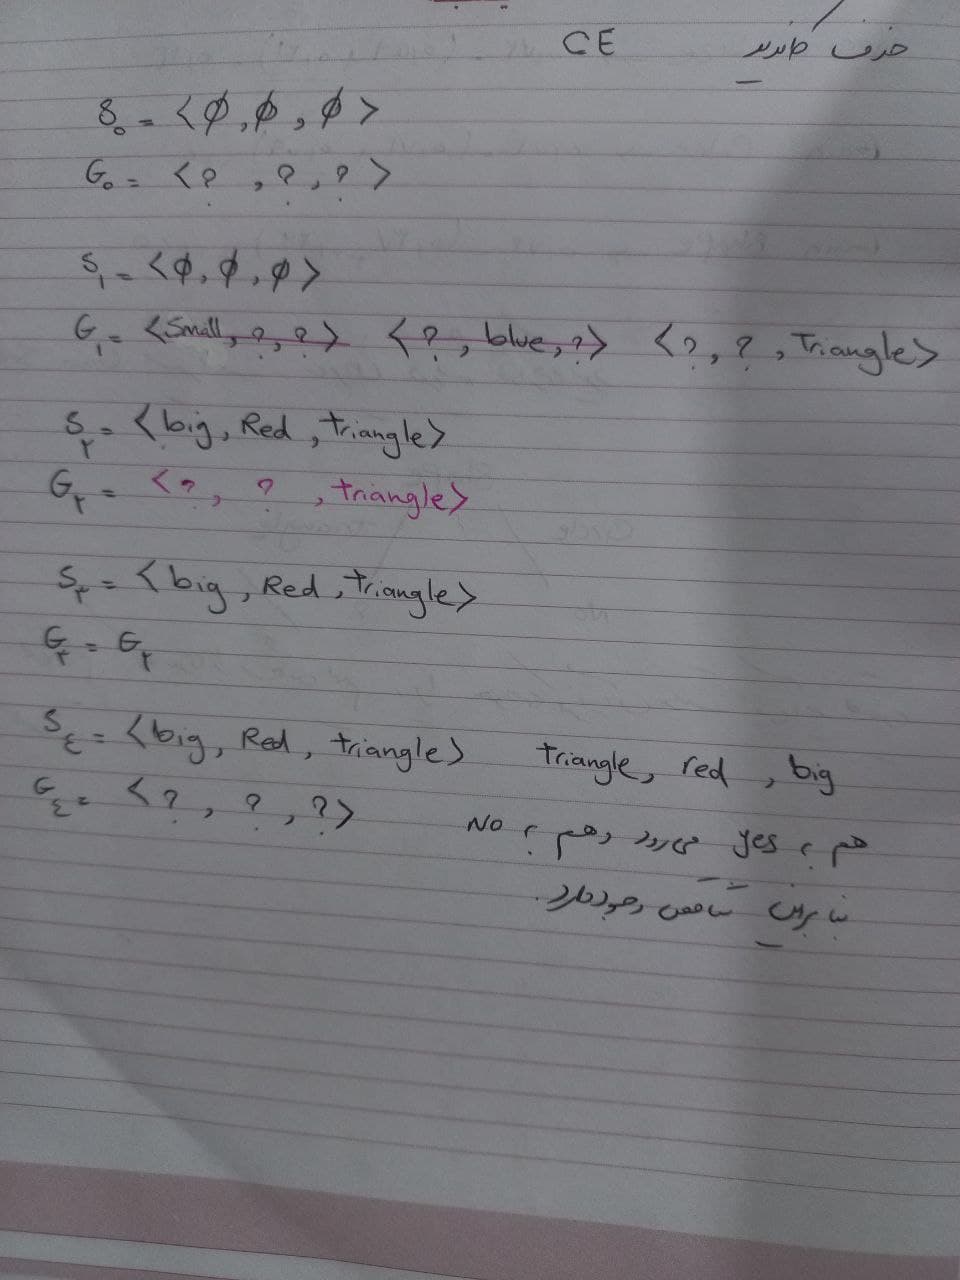 CE حذف کاندید
S₀ = <φ, φ, φ>
G₀ = <?, ?, ?>
S₁ = <φ, φ, φ>
G₁ = <Small, ?, ?> <?, blue, ?> <?, ?, Triangle>
S۲ = <big, Red, triangle>
G۲ = <?, ?, triangle>
S۳ = <big, Red, triangle>
G۳ = G۲
S٤ = <big, Red, triangle> triangle, red, big
G٤ = <?, ?, ?>
هم به yes می رود و هم به No
بنابراین تناقض وجود دارد.